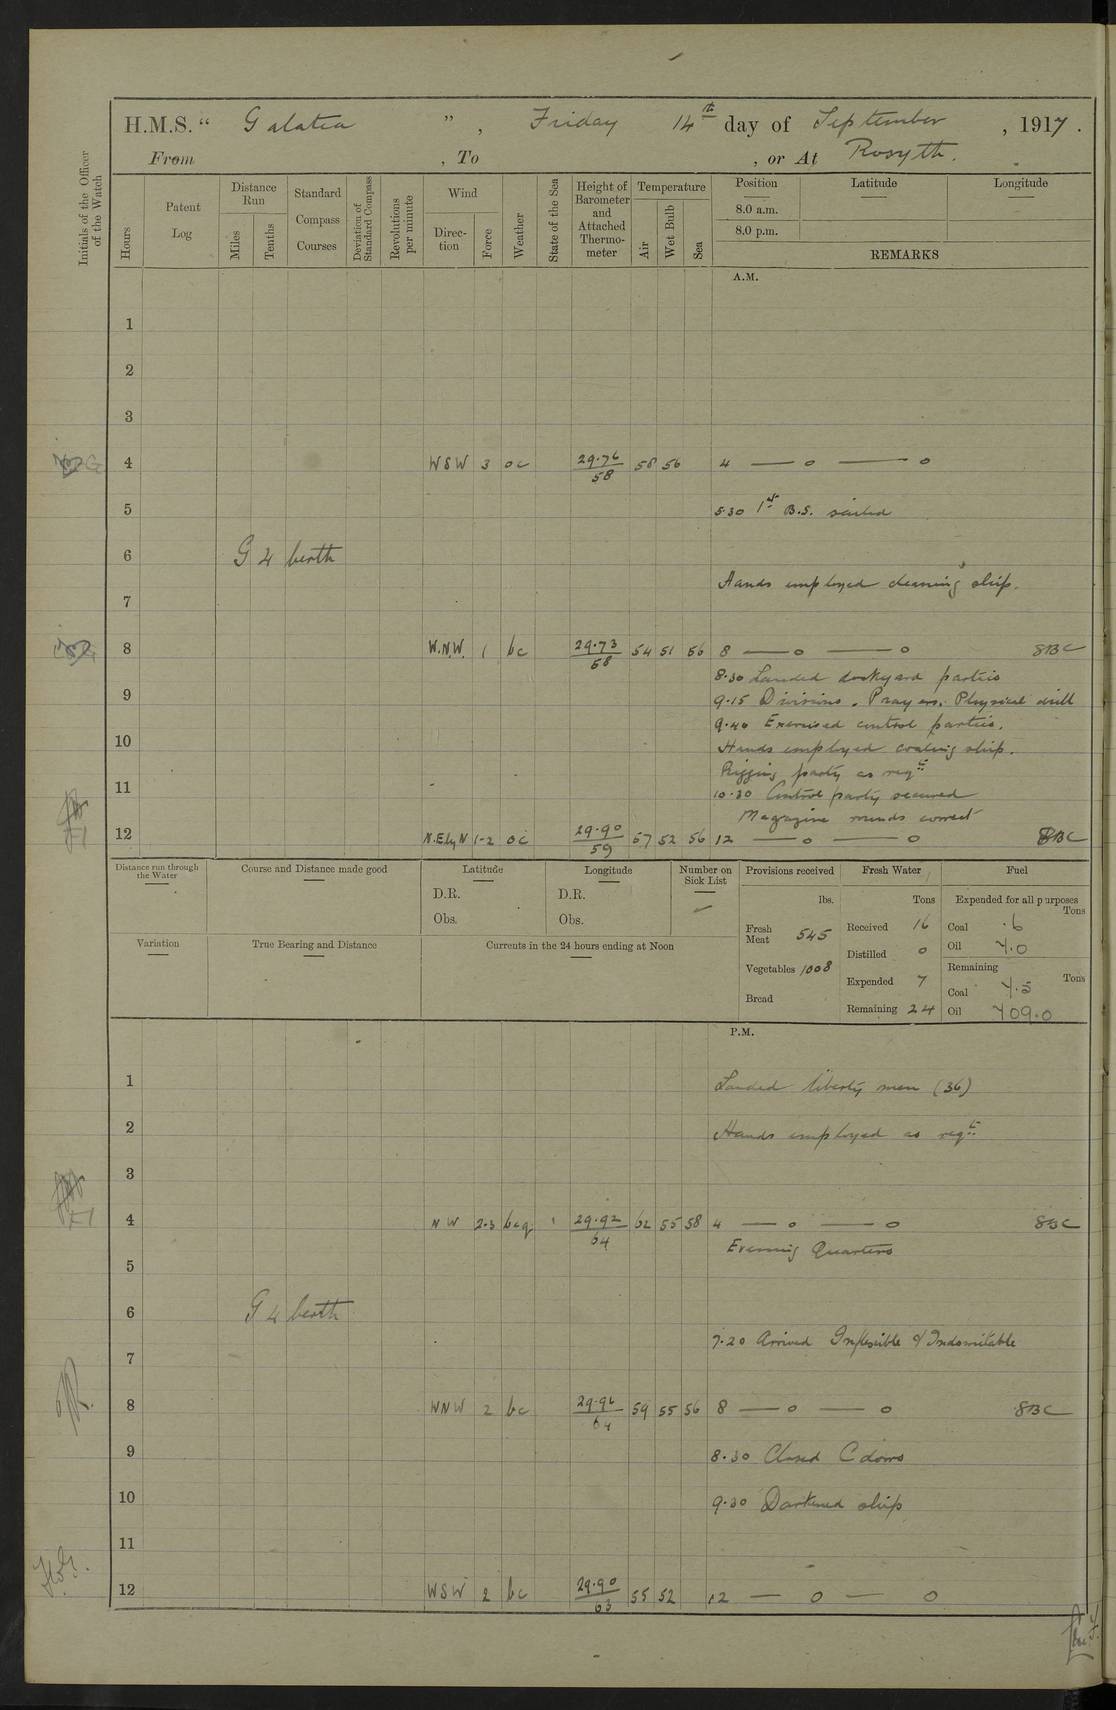 H.M.S. “ Galatea ” , Friday 14th day of September , 1917 .
From , To , or At Rosyth.
Initials of the Officer of the Watch
Hours
Patent Log
Distance Run
Miles
Tenths
Standard Compass Courses
Deviation of Standard Compass
Revolutions per minute
Wind
Direction
Force
Weather
State of the Sea
Height of Barometer and Attached Thermometer
Temperature
Air
Wet Bulb
Sea
Position Latitude Longitude
8.0 a.m.
8.0 p.m.
REMARKS
A.M.
1
2
3
4 WSW 3 oc 29.76/58 58 56 4 — o — o
5 5.30 1st B.S. sailed
6 G 4 berth
Hands employed cleaning ship.
7
8 W.N.W. 1 bc 29.73/58 54 51 56 8 — o — o SBC
8.30 Landed dockyard parties
9 9.15 Divisions. Prayers. Physical drill
9.40 Exercised control parties.
10 Hands employed coaling ship.
Rigging party as reqd
11 10.30 Control party secured
Magazine rounds correct
12 N.E by N 1-2 oc 29.90/59 57 52 56 12 — o — o SBC
Distance run through the Water
Course and Distance made good
Latitude
D.R.
Obs.
Longitude
D.R.
Obs.
Number on Sick List
Provisions received
lbs.
Fresh Meat 545
Vegetables 1008
Bread
Fresh Water
Tons
Received 16
Distilled 0
Expended 7
Remaining 24
Fuel
Expended for all purposes
Tons
Coal .6
Oil 7.0
Remaining
Tons
Coal 7.5
Oil 709.0
Variation
True Bearing and Distance
Currents in the 24 hours ending at Noon
P.M.
1 Landed liberty men (36)
2 Hands employed as reqd
3
4 NW 2-3 bcq 1 29.92/64 62 55 58 4 — o — o SBC
Evening Quarters
5
6 G 4 berth
7.20 Arrived Inflexible & Indomitable
7
8 WNW 2 bc 29.96/64 59 55 56 8 — o — o SBC
9 8.30 Closed C doors
10 9.30 Darkened ship
11
12 WSW 2 bc 29.90/63 55 52 12 — o — o